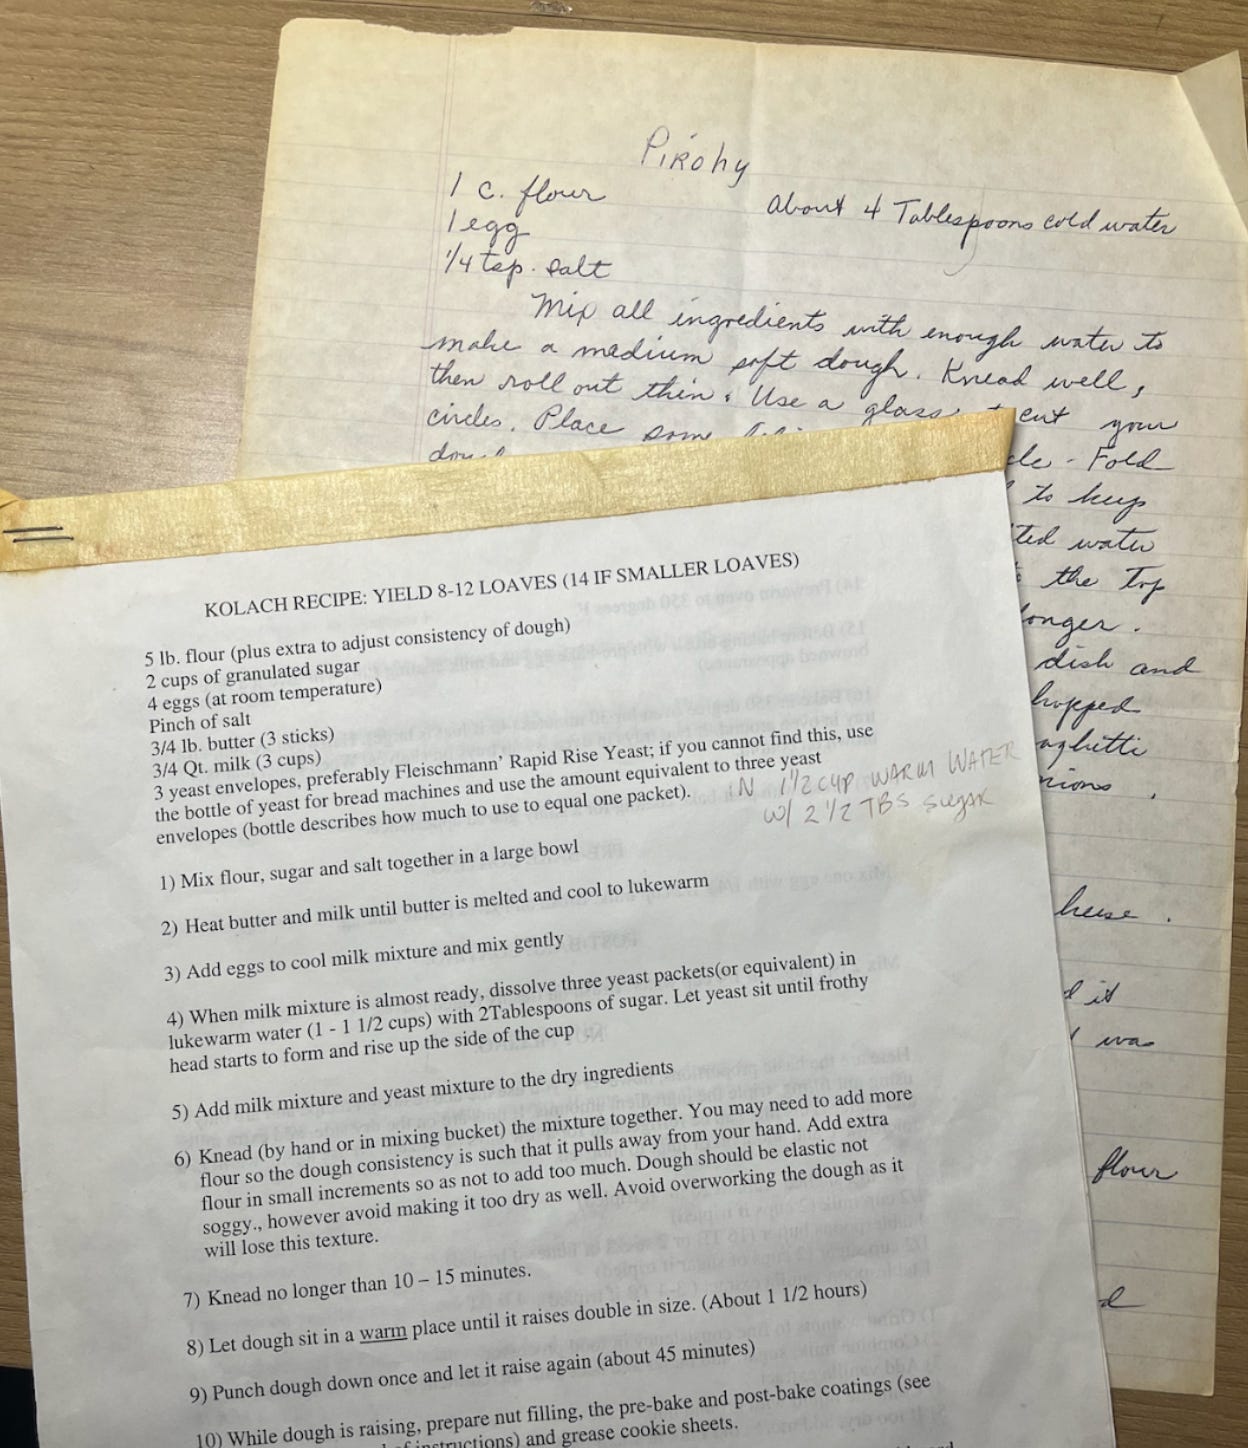 Pirohy
1 c. flour
About 4 Tablespoons cold water
1 egg
1/4 tsp. salt
Mix all ingredients with enough water to
make a medium soft dough. Knead well,
then roll out thin. Use a glass cut your
circles. Place some
Fold
to keep
water
the Top
longer.
dish and
hopped
aghetti
nions,
heese.
d it
was
flour
d
KOLACH RECIPE: YIELD 8-12 LOAVES (14 IF SMALLER LOAVES)
5 lb. flour (plus extra to adjust consistency of dough)
2 cups of granulated sugar
4 eggs (at room temperature)
Pinch of salt
3/4 lb. butter (3 sticks)
3/4 Qt. milk (3 cups)
3 yeast envelopes, preferably Fleischmann' Rapid Rise Yeast; if you cannot find this, use
the bottle of yeast for bread machines and use the amount equivalent to three yeast
envelopes (bottle describes how much to use to equal one packet).
IN 1 1/2 CUP WARM WATER
W/ 2 1/2 TBS sugar
1) Mix flour, sugar and salt together in a large bowl
2) Heat butter and milk until butter is melted and cool to lukewarm
3) Add eggs to cool milk mixture and mix gently
4) When milk mixture is almost ready, dissolve three yeast packets(or equivalent) in
lukewarm water (1 - 1 1/2 cups) with 2Tablespoons of sugar. Let yeast sit until frothy
head starts to form and rise up the side of the cup
5) Add milk mixture and yeast mixture to the dry ingredients
6) Knead (by hand or in mixing bucket) the mixture together. You may need to add more
flour so the dough consistency is such that it pulls away from your hand. Add extra
flour in small increments so as not to add too much. Dough should be elastic not
soggy., however avoid making it too dry as well. Avoid overworking the dough as it
will lose this texture.
7) Knead no longer than 10 – 15 minutes.
8) Let dough sit in a warm place until it raises double in size. (About 1 1/2 hours)
9) Punch dough down once and let it raise again (about 45 minutes)
10) While dough is raising, prepare nut filling, the pre-bake and post-bake coatings (see
of instructions) and grease cookie sheets.